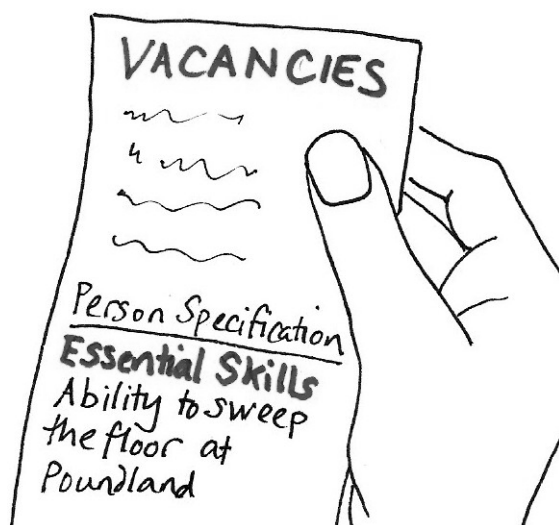 VACANCIES
Person Specification
Essential Skills
Ability to sweep
the floor at
Poundland